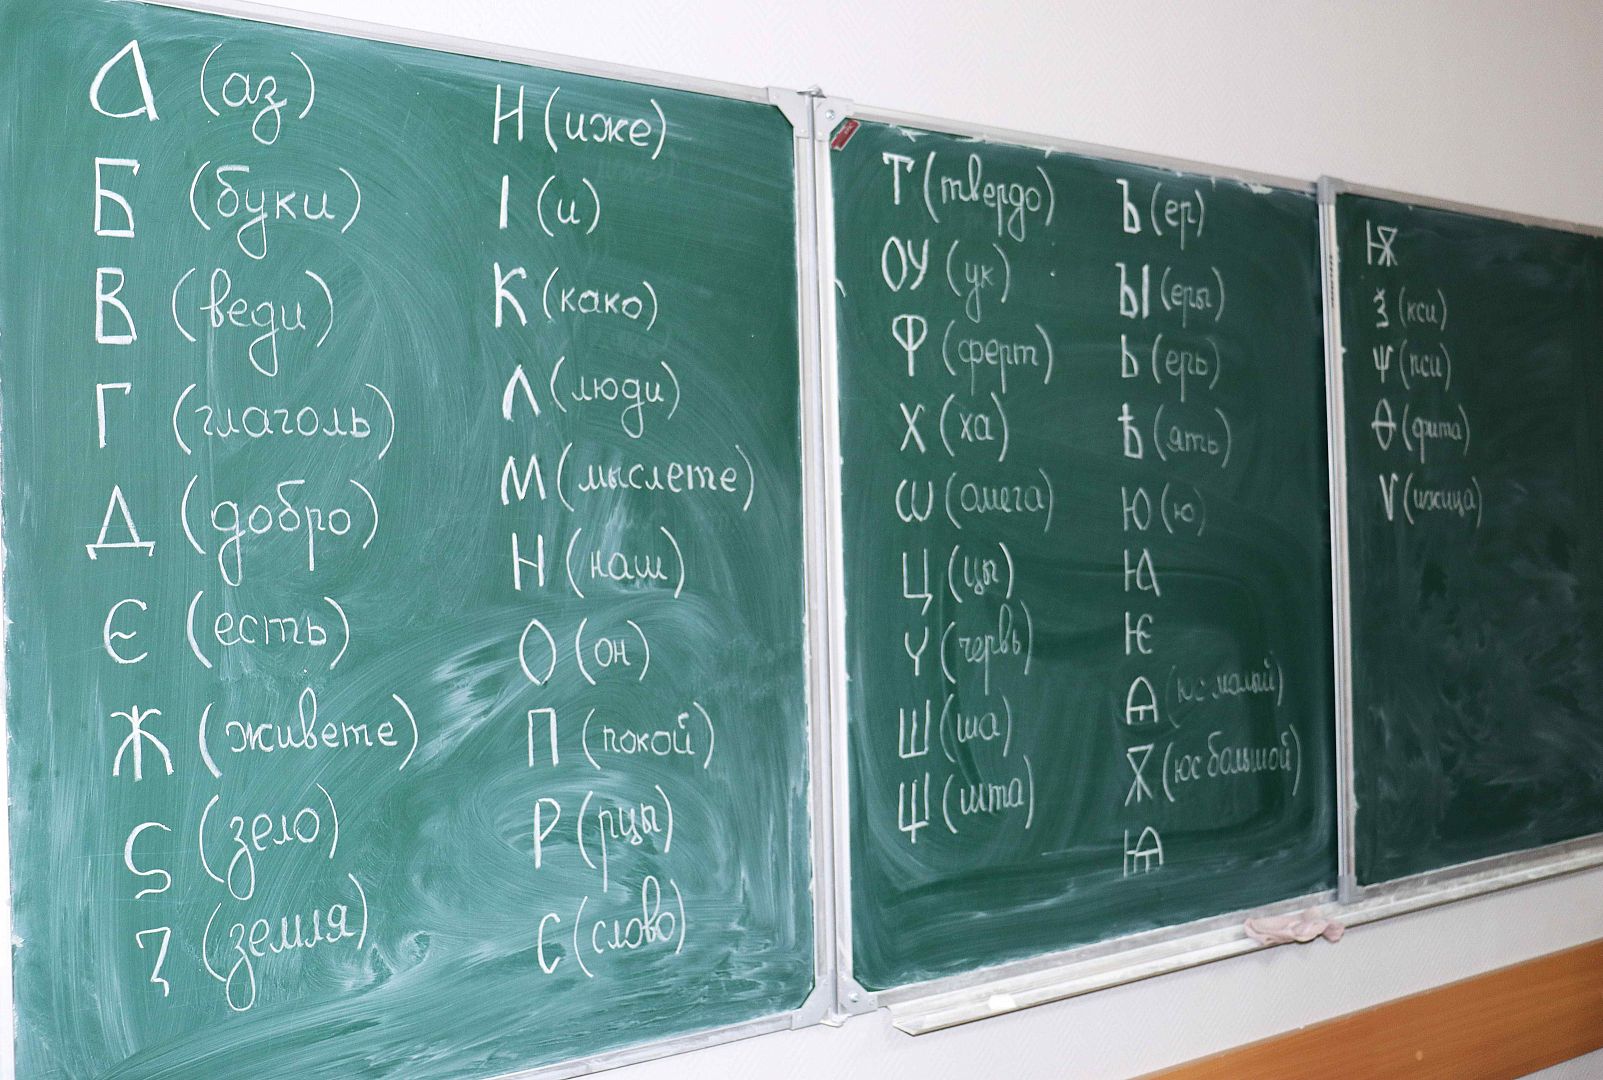 А (аз)
Б (буки)
В (веди)
Г (глаголь)
Д (добро)
Є (есть)
Ж (живете)
Ѕ (зело)
З (земля)
Н (иже)
І (и)
К (како)
Л (люди)
М (мыслете)
Н (наш)
О (он)
П (покой)
Р (рцы)
С (слово)
Т (твердо)
ОУ (ук)
Ф (ферт)
Х (ха)
Ѡ (омега)
Ц (цы)
Ч (червь)
Ш (ша)
Щ (шта)
Ъ (ер)
ЪІ (еры)
Ь (ерь)
Ѣ (ять)
Ю (ю)
Ꙗ
Ѥ
Ѧ (юс малый)
Ѫ (юс большой)
Ѩ
Ѭ
Ѯ (кси)
Ѱ (пси)
Ѳ (фита)
Ѵ (ижица)